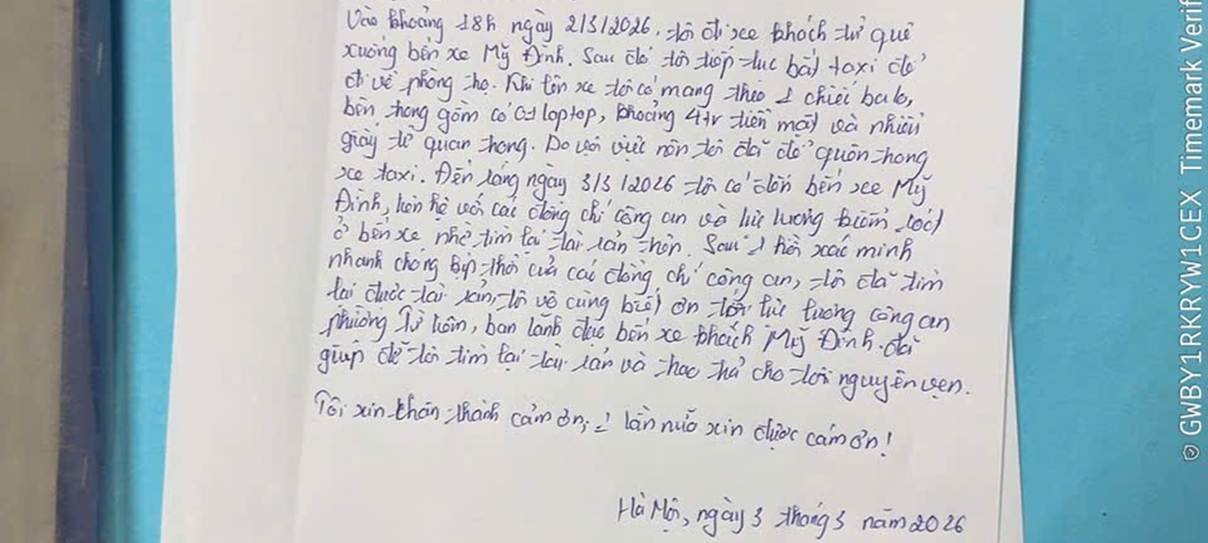 Vào khoảng 18h ngày 2/3/2026, tôi đi xe khách từ quê
xuống bến xe Mỹ Đình. Sau đó tôi tiếp tục bắt taxi để
đi về phòng trọ. Khi lên xe tôi có mang theo 1 chiếc balo,
bên trong gồm có 01 laptop, khoảng 4tr tiền mặt và nhiều
giấy tờ quan trọng. Do vội vàng nên tôi đã để quên trong
xe taxi. Đến sáng ngày 3/3/2026 tôi có đến bến xe Mỹ
Đình, liên hệ với các đồng chí công an và lực lượng kiểm soát
ở bến xe nhờ tìm lại tài sản trên. Sau 1 hồi xác minh
nhanh chóng kịp thời của các đồng chí công an, tôi đã tìm
lại được tài sản, tôi vô cùng biết ơn tới lực lượng công an
phường Từ Liêm, ban lãnh đạo bến xe khách Mỹ Đình đã
giúp đỡ tôi tìm lại tài sản và trao trả cho tôi nguyên vẹn.
Tôi xin chân thành cảm ơn, 1 lần nữa xin được cảm ơn!
Hà Nội, ngày 3 tháng 3 năm 2026
© GWBY1RKRYW1CEX Timemark Verif